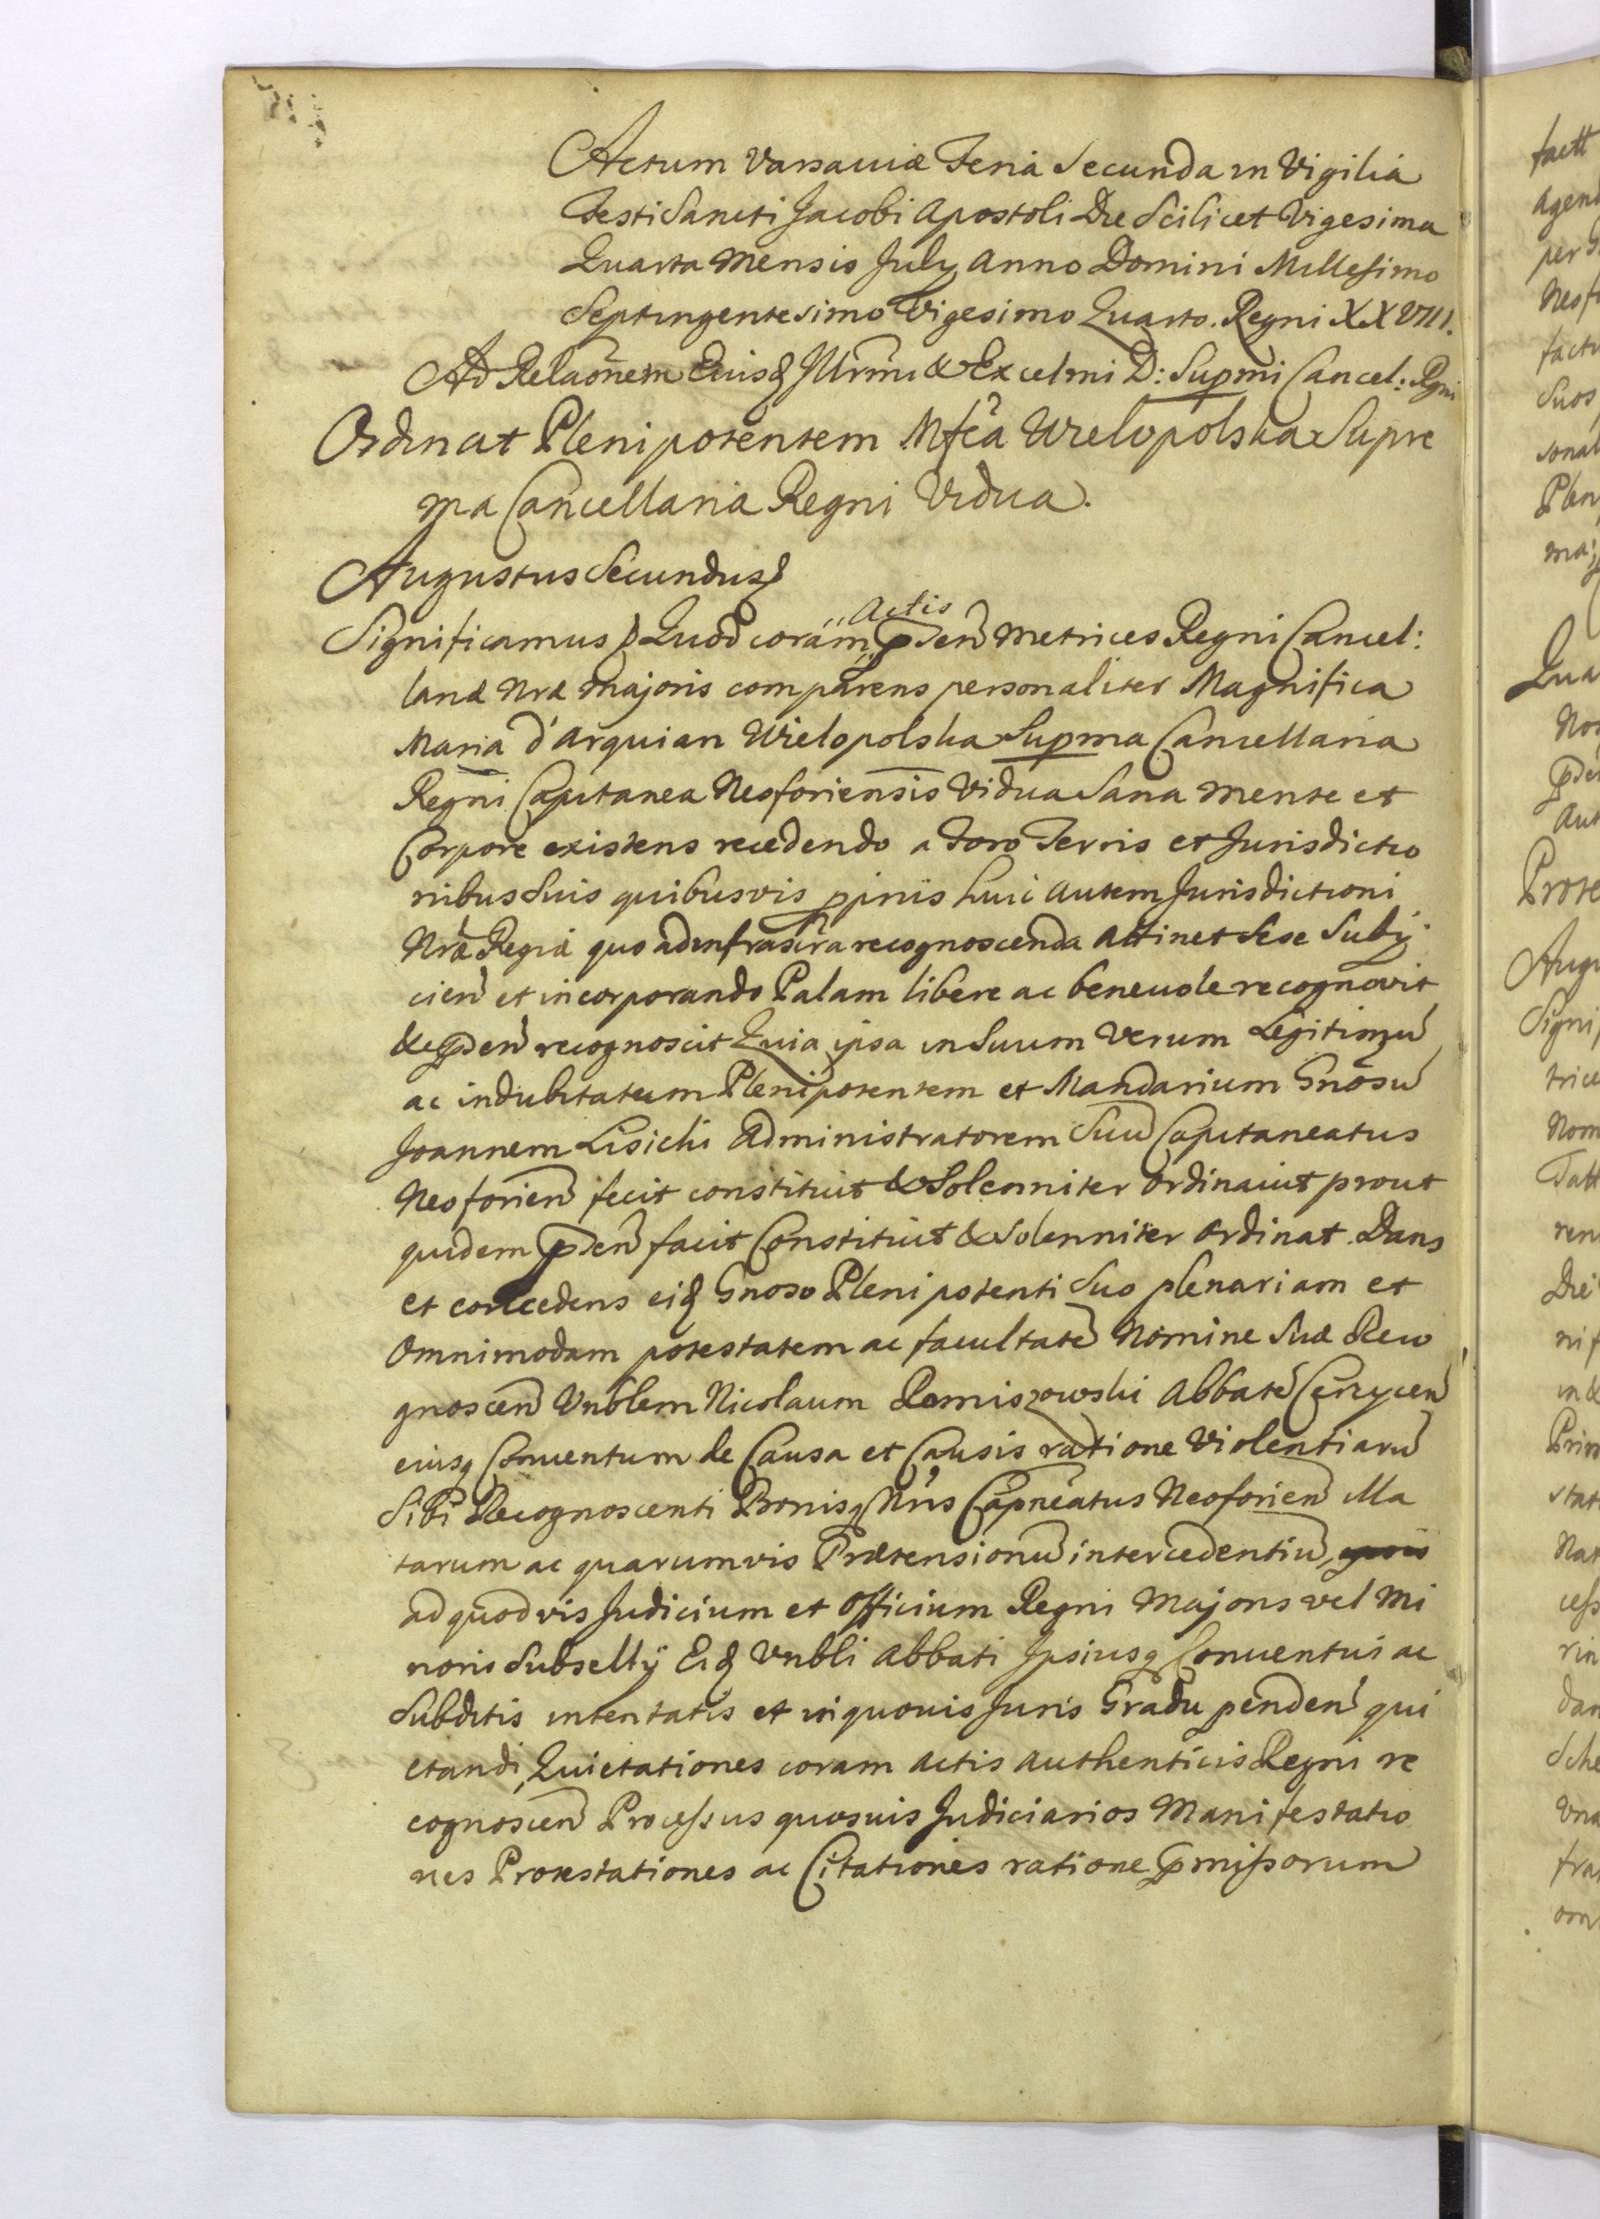 Actum Varsaviæ Feria Secunda in Vigilia
Festi Sancti Jacobi Apostoli Die Scilicet Vigesima
Quarta Mensis July Anno Domini Millesimo
Septingentesimo Vigesimo Quarto. Regni XXVIII.
Ad Relaõnem Eiusd Illrm̃i & Excelmi D: Supmi Cancel: Rgni
Ordinat Plenipotentem Mfcã Wielopolska Supre
ma Cancellaria Regni Vidua.
Augustus Secundus
Significamus Quod coram Actis pñsen Metrices Regni Cancel:
lariæ Nræ Majoris comparens personaliter Magnifica
Maria d'Arquian Wielopolska Supma Cancellaria
Regni Capitanea Neoforiensis Vidua Sana mente et
Corpore existens recedendo a Foro Terris et Jurisdictio
nibus Suis quibusvis ppriis huic autem Jurisdictioni
Nræ Regiæ quo ad infrascrã recognoscenda attinet Sese Subij
cien et incorporando Palam libere ac beneuole recognovit
& psen recognoscit Quia ipsa in Suum Verum Legitimũ
ac indubitatum Plenipotentem et Mandarium Gnõsũ
Joannem Lisicki Administratorem Suũ Capitaneatus
Neoforien fecit constituit & Solenniter ordinauit prout
quidem psen facit Constituit & Solenniter Ordinat. Dans
et concedens eid Gnoso Plenipotenti Suo plenariam et
Omnimodam potestatem ac facultatẽ Nomine Suæ Reco
gnoscen Vnblem Nicolaum Remiszowski Abbatẽ Cyrycen
eiusq Conuentum de Causa et Causis ratione Violentiarũ
Sibi Recognoscenti Bonisq Nris Capneatus Neoforien Illa
tarum ac quarumvis Prætensionũ intercedentiũ
ad quodvis Judicium et Officium Regni Majoris vel Mi
noris Subsellij Eid Vnbli Abbati Ipsiusq Conuentui ac
Subditis intentatis et in quouis Juris Gradu penden qui
etandi, Quietationes coram Actis Authenticis Regni re
cognoscen Processus quosuis Judiciarios Manifestatio
nes Protestationes ac Citationes ratione pmissorum